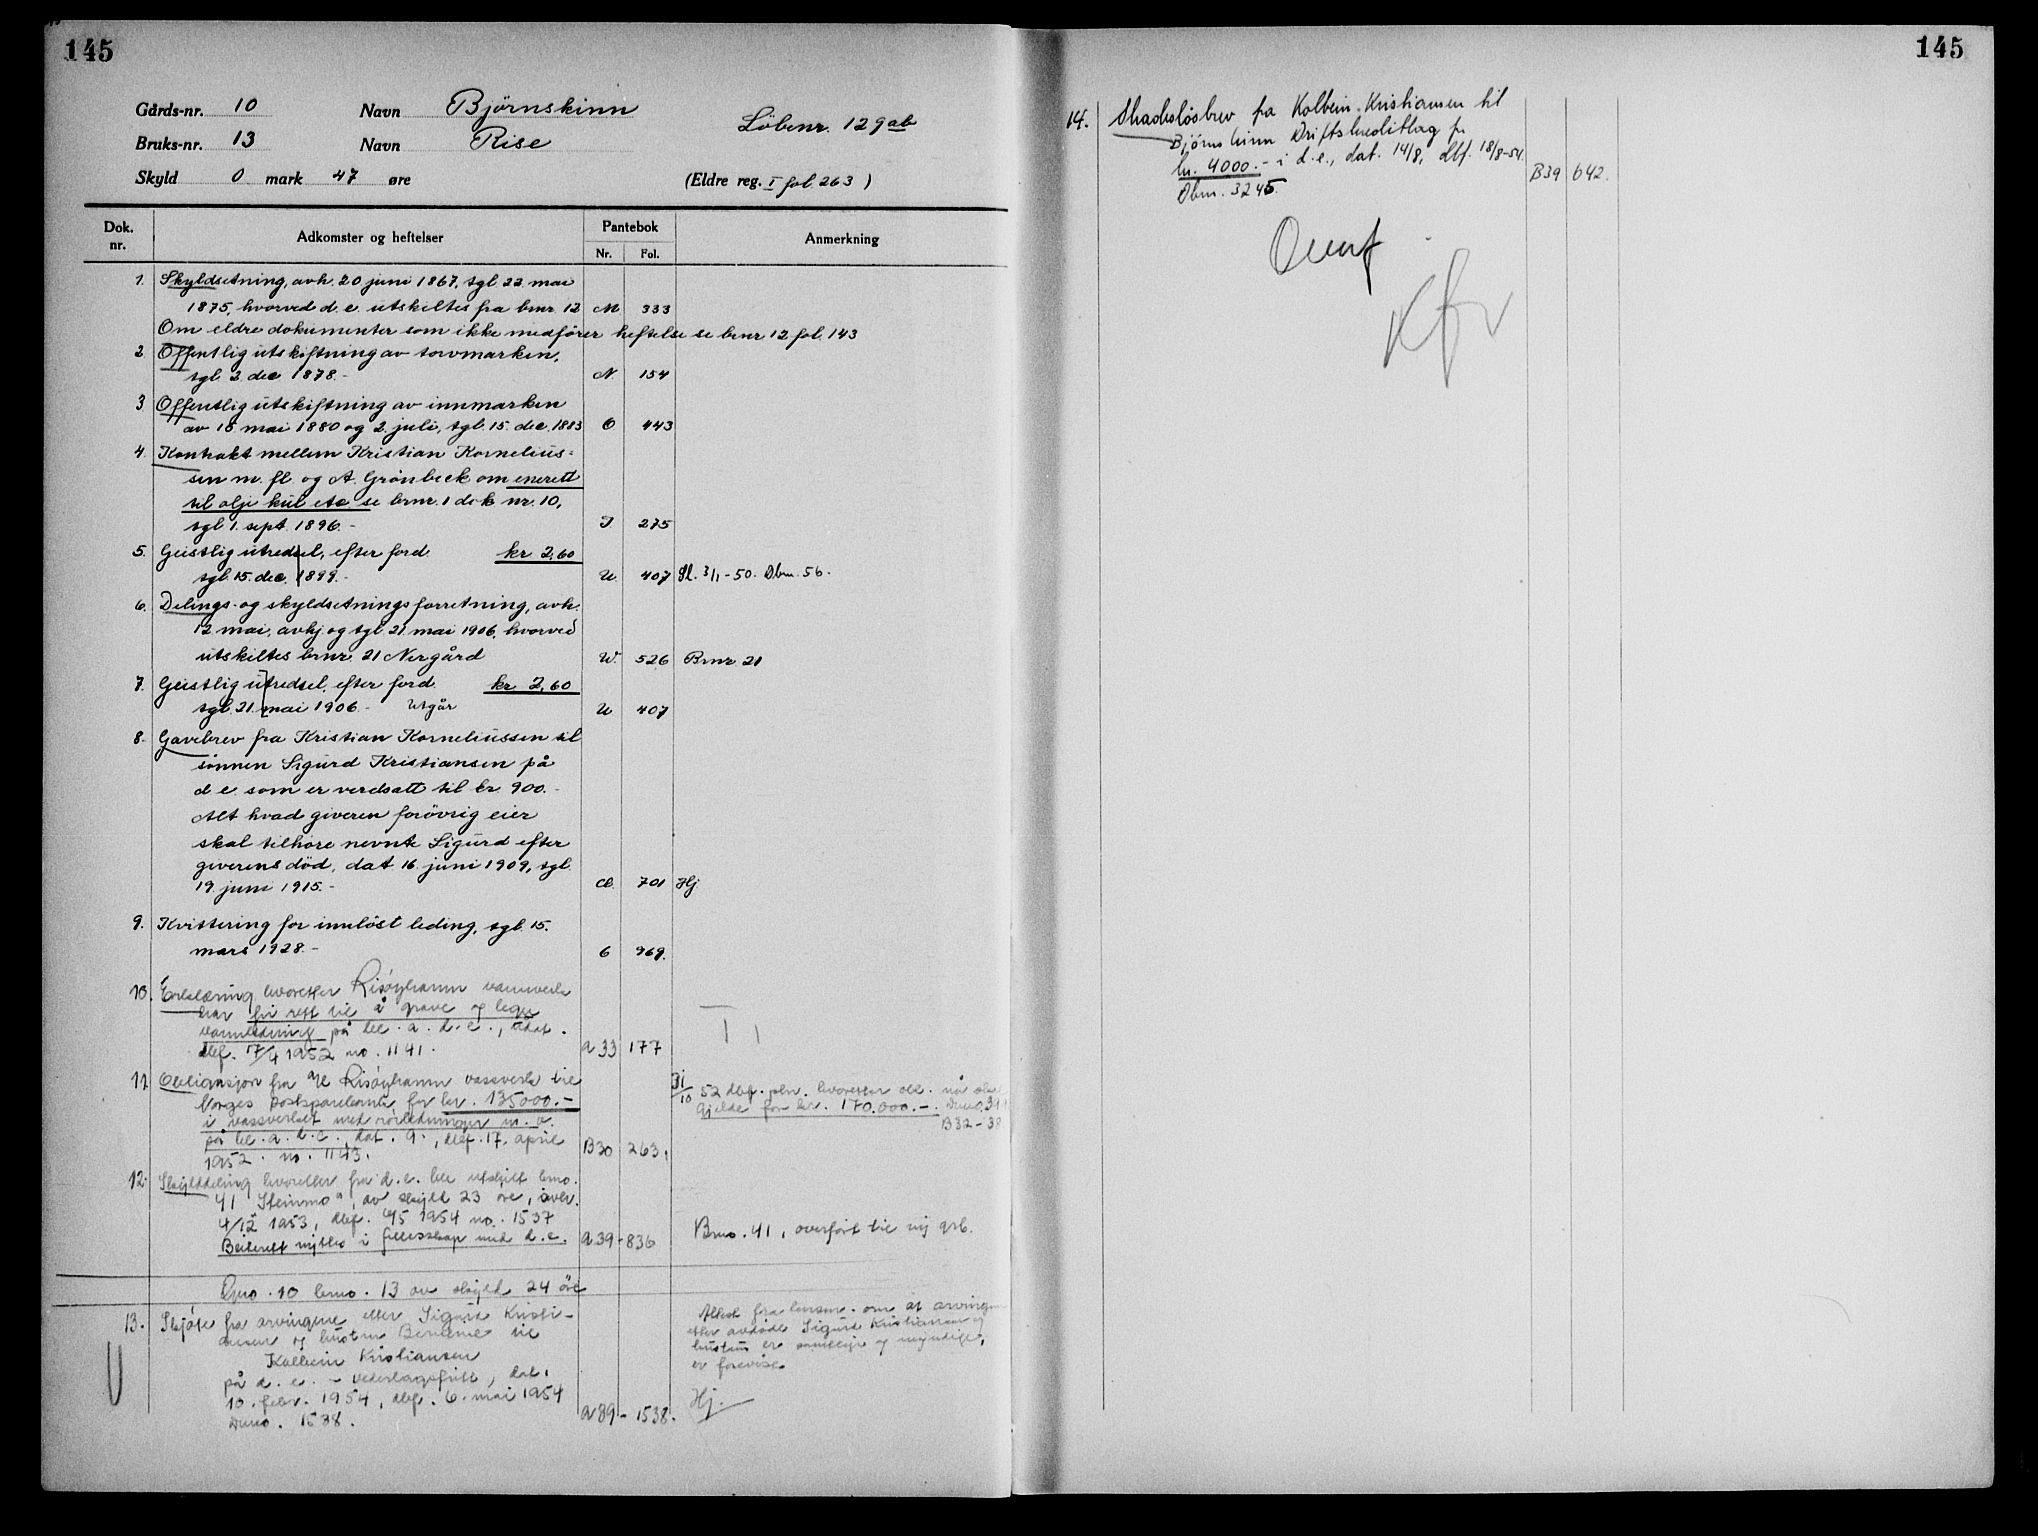 145
Gårds-nr. 10 Navn Björnskinn
Löbenr. 129ab
Bruks-nr. 13 Navn Rise
Skyld 0 mark 47 øre (Eldre reg. I fol. 263)
Dok. nr. Adkomster og heftelser Pantebok Nr. Fol. Anmerkning
1. Skyldsetning, avh. 20 juni 1867, tgl 22. mai
1875, hvorved d. e. utskiltes fra brnr. 12 M 333
Om eldre dokumenter som ikke medfører heftelse se brnr 12 fol. 143
2 Offentlig utskiftning av torvmarken,
tgl. 2. dec 1878.- N. 154
3 Offentlig utskiftning av innmarken
av 18 mai 1880 og 2. juli, tgl. 15. dec. 1883 O 443
4. Kontrakt mellem Kristian Kornelius-
sen m. fl. og A. Grönbeck om enerett
til olje kul etc se brnr. 1 dok nr. 10,
tgl 1. sept. 1896.- T. 275
5. Geistlig utredsel, efter ford. kr 2,60
tgl. 15. dec. 1899.- U. 407 Sl. 3/1-50. Dbnr. 56.
6. Delings- og skyldsetningsforretning, avh.
12 mai, avhj og tgl 21. mai 1906, hvorved
utskiltes brnr. 21 Nergård W. 526 Brnr 21
7. Geistlig utredsel, efter ford. kr 2,60
tgl. 21. mai 1906.- Utgår U 407
8. Gavebrev fra Kristian Korneliussen til
sönnen Sigurd Kristiansen på
d. e. som er verdsatt til kr. 900.-
Alt hvad giveren forövrig eier
skal tilhöre nevnte Sigurd efter
giverens död, dat. 16. juni 1909, tgl.
19. juni 1915.- 701 Hj
9. Kvittering for innlöst leding, tgl. 15.
mars 1928.- 6 969.
10. Erklæring hvoretter Risöyhamn vannverk
har fri rett til å grave og legge
vannledning på bl. a. d. e., udat.
dbf. 7/4 1952 no. 1141. A 33 177
11 Obligasjon fra A/L Risöyhamn vassverk til
Norges postsparebank for kr. 135000.-
i vassverket med rörledninger m. v.
på bl. a. d. e., dat. 9., dbf. 17. april
1952. no. 1143. B30 263.
31/10 52 dbf. pln. hvoretter obl. nå skal
gjelde for kr. 170.000.-.
B32-38
12. Skylddeling hvoretter fra d. e. ble utskilt bno.
41 "Steinmo", av skyld 23 öre,
4/12 1953, dbf. 6/5 1954 no. 1537
Beiterett nyttes i fellesskap med d. e. A 39-836 Bno. 41, overfört til ny grb.
Gno. 10 bno. 13 av skyld 24 öre
13. Skjöte fra arvingene etter Sigurd Kristi-
ansen og hustru til
Kolbein Kristiansen
på d. e. - vederlagsfritt, dat.
10. febr. 1954, dbf. 6. mai 1954
Dbno. 1538. A 39-1538.
Attest fra lensm. om at arvingene
etter avdöde Sigurd Kristiansen og
hustru er samtlige og myndige,
er forevist.
Hj.
145
14. Skadeslösbrev fra Kolbein Kristiansen til
Björnskinn Driftskredittlag for
kr. 4000.- i d. e., dat. 14/8, dbf. 18/8-54.
Dbnr. 3245. B39 642.